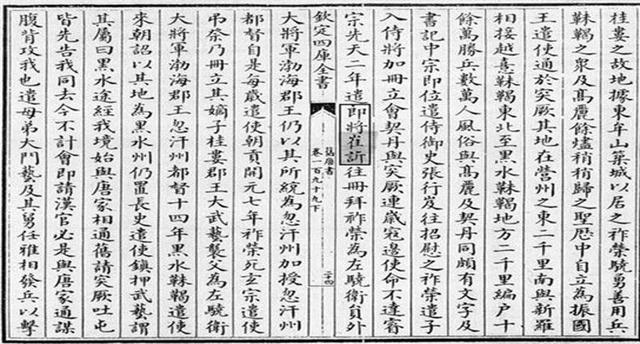 桂婁之故地據東牟山築城以居之祚榮驍勇善用兵
靺鞨之衆及高麗餘燼稍稍歸之聖厯中自立為振國
王遣使通於突厥其地在營州之東二千里南與新羅
相接越憙靺鞨東北至黑水靺鞨地方二千里編户十
餘萬勝兵數萬人風俗與高麗及契丹同頗有文字及
書記中宗即位遣侍御史張行岌往招慰之祚榮遣子
入侍將加冊立會契丹與突厥連歳寇邊使命不達睿
宗先天二年遣郎將崔訢往冊拜祚榮為左驍衛員外
欽定四庫全書
舊唐書
卷一百九十九下
二十四
大將軍渤海郡王仍以其所統為忽汗州加授忽汗州
都督自是每歳遣使朝貢開元七年祚榮死玄宗遣使
弔祭乃冊立其嫡子桂婁郡王大武藝襲父為左驍衛
大將軍渤海郡王忽汗州都督十四年黑水靺鞨遣使
來朝詔以其地為黑水州仍置長史遣使鎮押武藝謂
其屬曰黑水途經我境始與唐家相通舊請突厥吐屯
皆先告我同去今不計會即請漢官必是與唐家通謀
腹背攻我也遣母弟大門藝及其舅任雅相發兵以擊